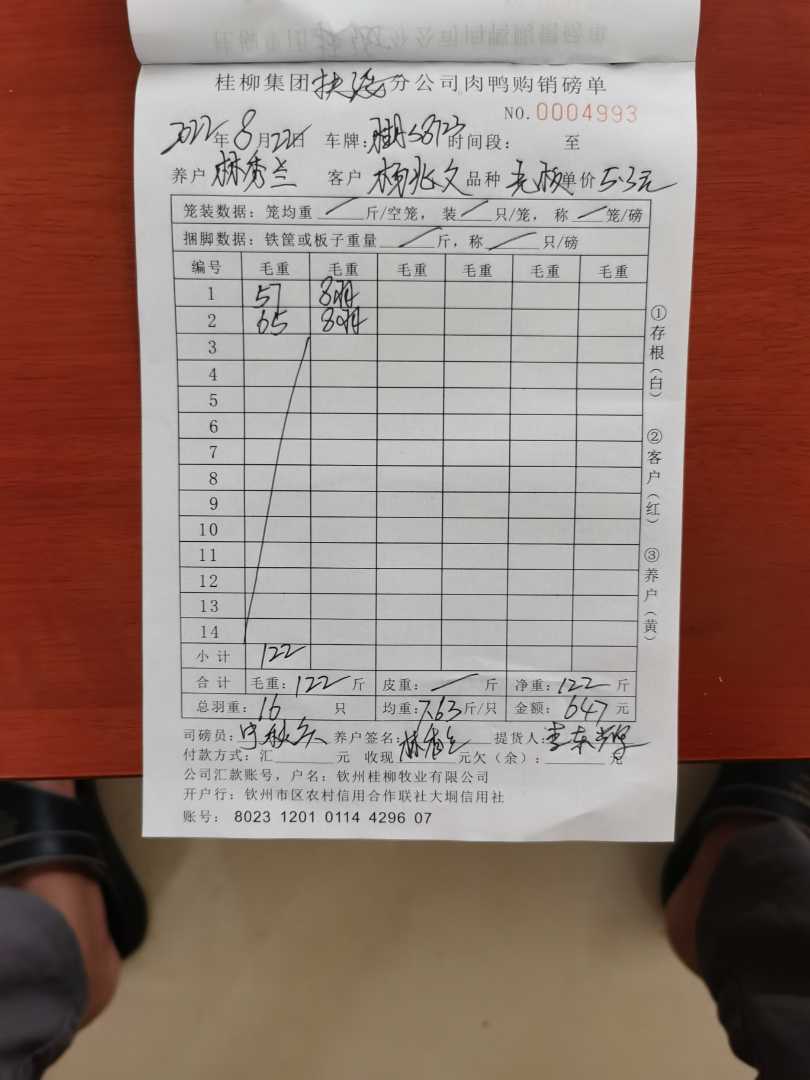 桂柳集团 分公司肉鸭购销磅单
NO.0004993
2022年8月22日 车牌: 58123 时间段: 至
养户 林秀兰 客户 杨兆文 品种 单价 5.3元
笼装数据:笼均重 / 斤/空笼,装 / 只/笼,称 / 笼/磅
捆脚数据:铁筐或板子重量 / 斤,称 / 只/磅
编号 毛重 毛重 毛重 毛重 毛重 毛重
1 57 8羽
2 65 8羽
3
4
5
6
7
8
9
10
11
12
13
14
小计 122
合计 毛重:122斤 皮重:/斤 净重:122斤
总羽重:16只 均重:7.63斤/只 金额:647元
司磅员: 养户签名:林秀兰 提货人:
付款方式:汇 元 收现 元欠(余): 元
公司汇款账号,户名:钦州桂柳牧业有限公司
开户行:钦州市区农村信用合作联社大垌信用社
账号: 8023 1201 0114 4296 07
①存根(白)
②客户(红)
③养户(黄)